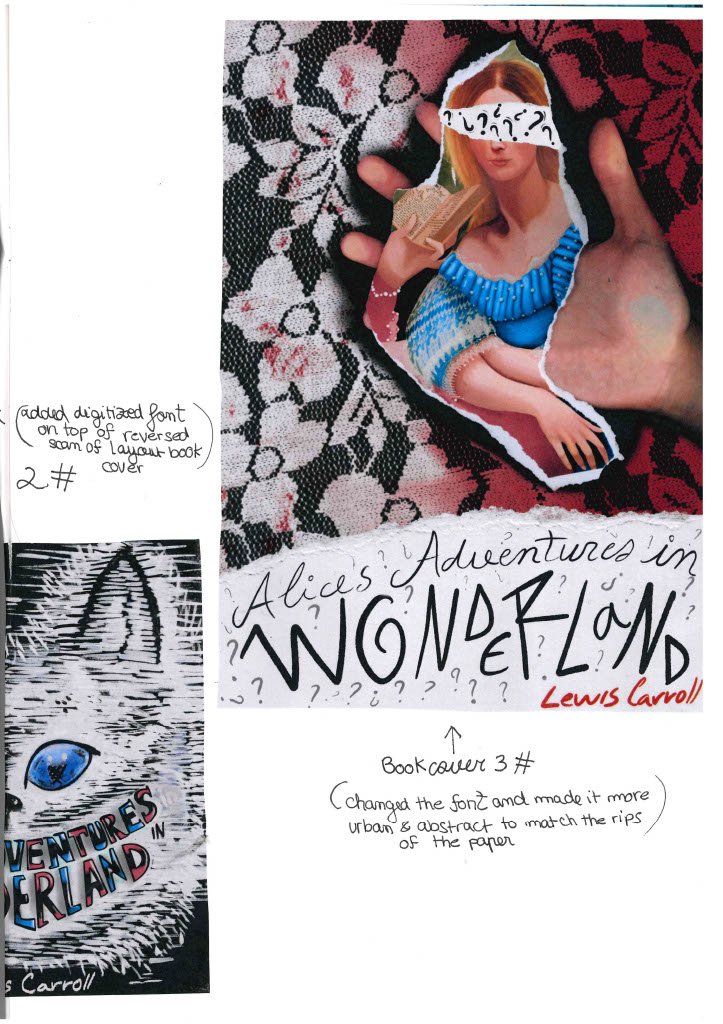 Alices Adventures in
WONDERLAND
Lewis Carroll
(added digitized font
on top of reversed
scan of layout book
cover)
2#
VENTURES
IN
DERLAND
s Carroll
↑
Bookcover 3#
(changed the font and made it more
urban & abstract to match the rips
of the paper)